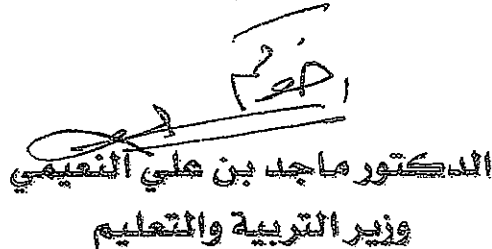 الدكتور ماجد بن علي النعيمي
وزير التربية والتعليم